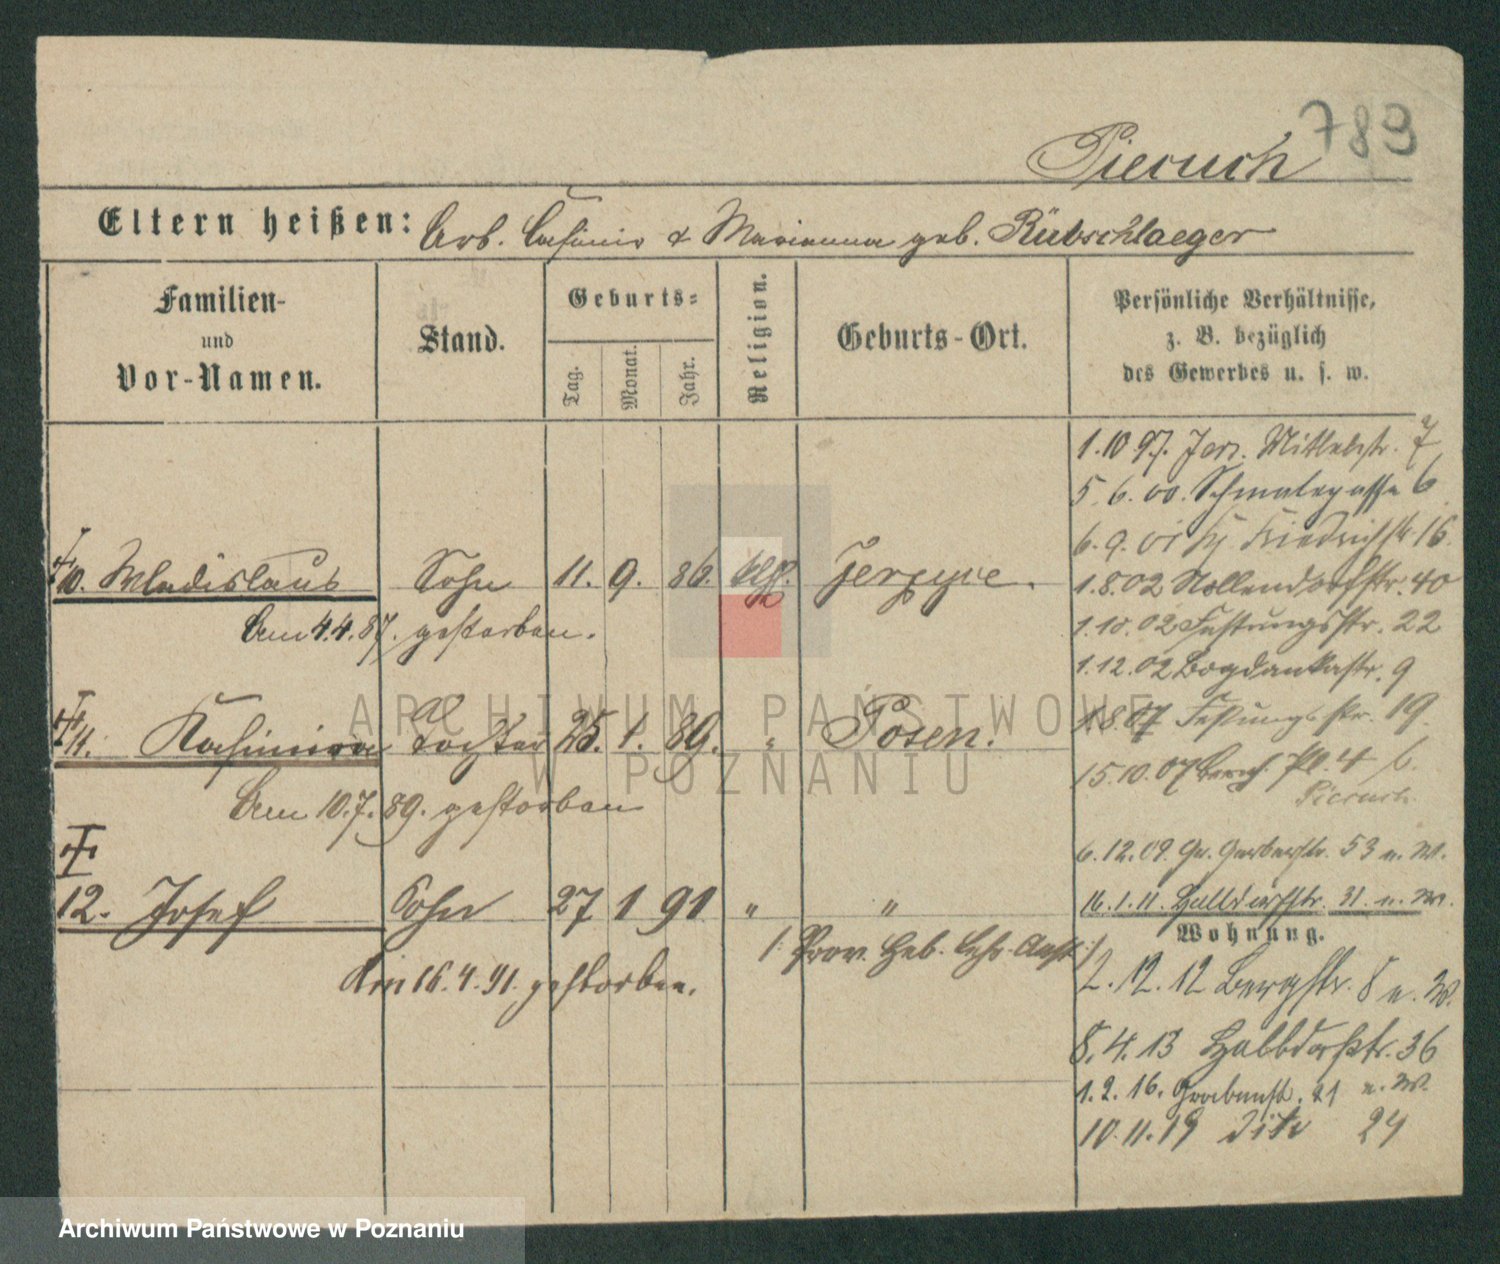 789
Pieruch
Eltern heißen: Arb. Casimir & Marianna geb. Rübschlaeger
Familien-
und
Vor-Namen.
Stand.
Geburts-
Tag.
Monat.
Jahr.
Religion.
Geburts-Ort.
Persönliche Verhältnisse,
z. B. bezüglich
des Gewerbes u. s. w.
1.10 97. Jerz. Mittelstr. 7
5.6.00. Schmalegasse 6
6.9.01 Friedrichstr 16
1.8.02 Nollendorfstr. 40
1.10.02 Festungsstr. 22
1.12.02 Bogdankastr. 9
1.8.07 Festungsstr. 19.
15.10.07 Pl. 4
Pieruch.
6.12.09. Gr. Gerberstr. 53 n. W.
16.1.11. Halbdorfstr. 31. n. W.
Wohnung.
2.12.12 Bergstr. 8 n. W.
8.4.13 Halbdorfstr. 36
1.2.16. Grabenstr. 21 n. W.
10.11.19 dito 24
10. Wladislaus Sohn 11. 9. 86. kth. Jerzyce.
Am 4.4.87. gestorben.
11. Kasimira Tochter 25. 1. 89. " Posen.
Am 10.7.89. gestorben
12. Josef Sohn 27 1 91 " "
/: Prov. Heb. Lehr-Anst. :/
Am 16.4.91. gestorben.
ARCHIWUM PAŃSTWOWE
W POZNANIU
Archiwum Państwowe w Poznaniu